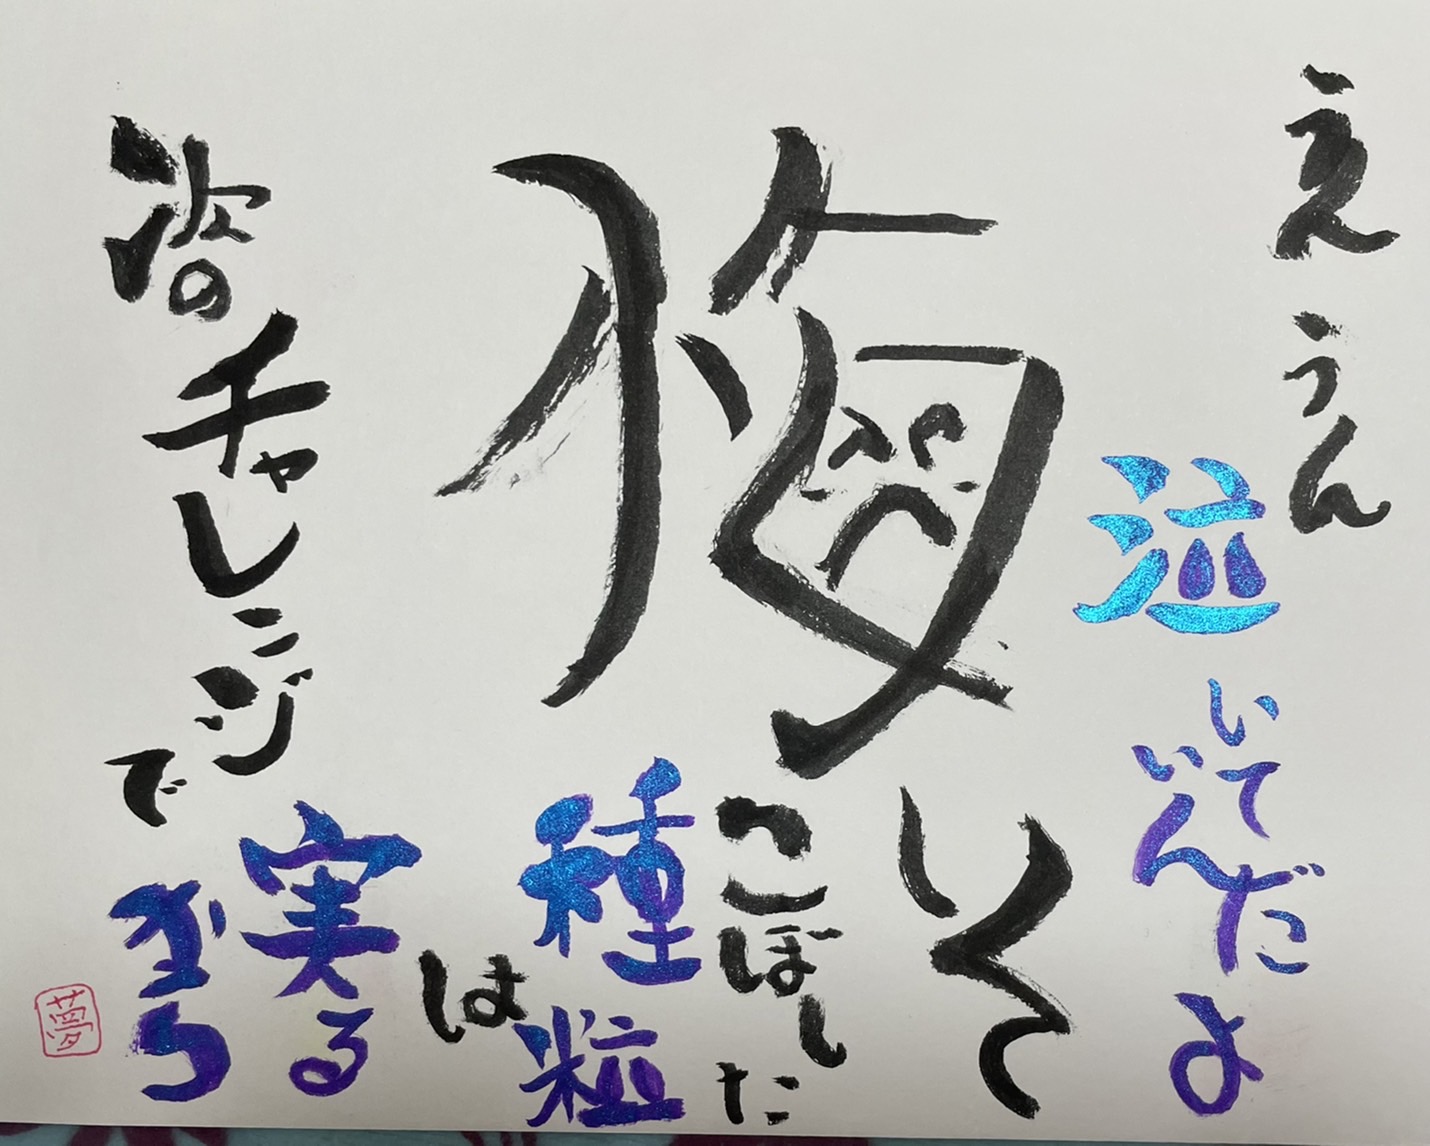 うんうん
泣いて
いいんだよ
悔しくて
こぼした
種粒
は
次のチャレンジで
実る
から
夢